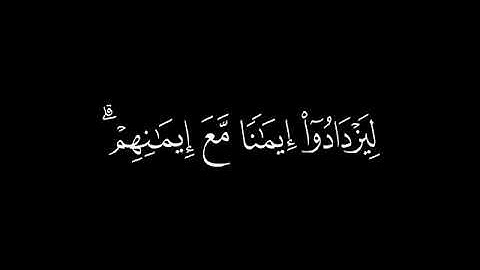 لِيَزْدَادُوٓا۟ إِيمَـٰنًا مَّعَ إِيمَـٰنِهِمْ ۗ